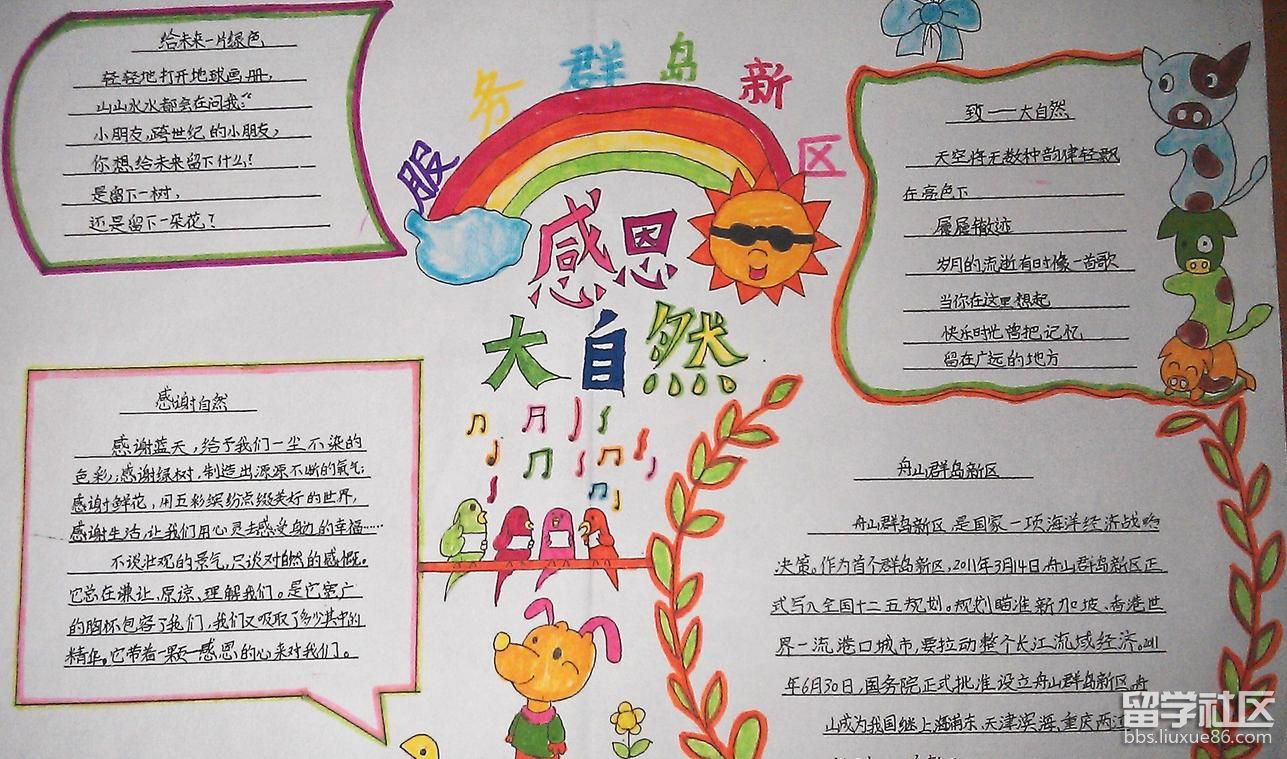 服务群岛新区
感恩
大自然
给未来一片绿色
轻轻地打开地球画册,
山山水水都会在问我:“
小朋友,跨世纪的小朋友,
你想给未来留下什么?
是留下一树,
还是留下一朵花?
致——大自然
天空将无数种韵律轻飘
在亮色下
屡屡辙迹
岁月的流逝有时像一首歌
当你在这里想起
快乐时忙曾把记忆
留在广远的地方
感谢自然
感谢蓝天,给予我们一尘不染的
色彩;感谢绿树,制造出源源不断的氧气;
感谢鲜花,用五彩缤纷点缀美好的世界,
感谢生活,让我们用心灵去感受身边的幸福……
不谈壮观的景气,只谈对自然的感慨。
它总在谦让、原谅、理解我们。是它宽广
的胸怀包容了我们,我们又吸取了多少其中的
精华。它带着一颗感恩的心来对我们。
舟山群岛新区
舟山群岛新区是国家一项海洋经济战略
决策。作为首个群岛新区,2011年3月14日,舟山群岛新区正
式写入全国十二五规划。规划瞄准新加坡、香港世
界一流港口城市,要拉动整个长江流域经济。2011
年6月30日,国务院正式批准设立舟山群岛新区,舟
山成为我国继上海浦东、天津滨海、重庆两江
留学社区
bbs.liuxue86.com